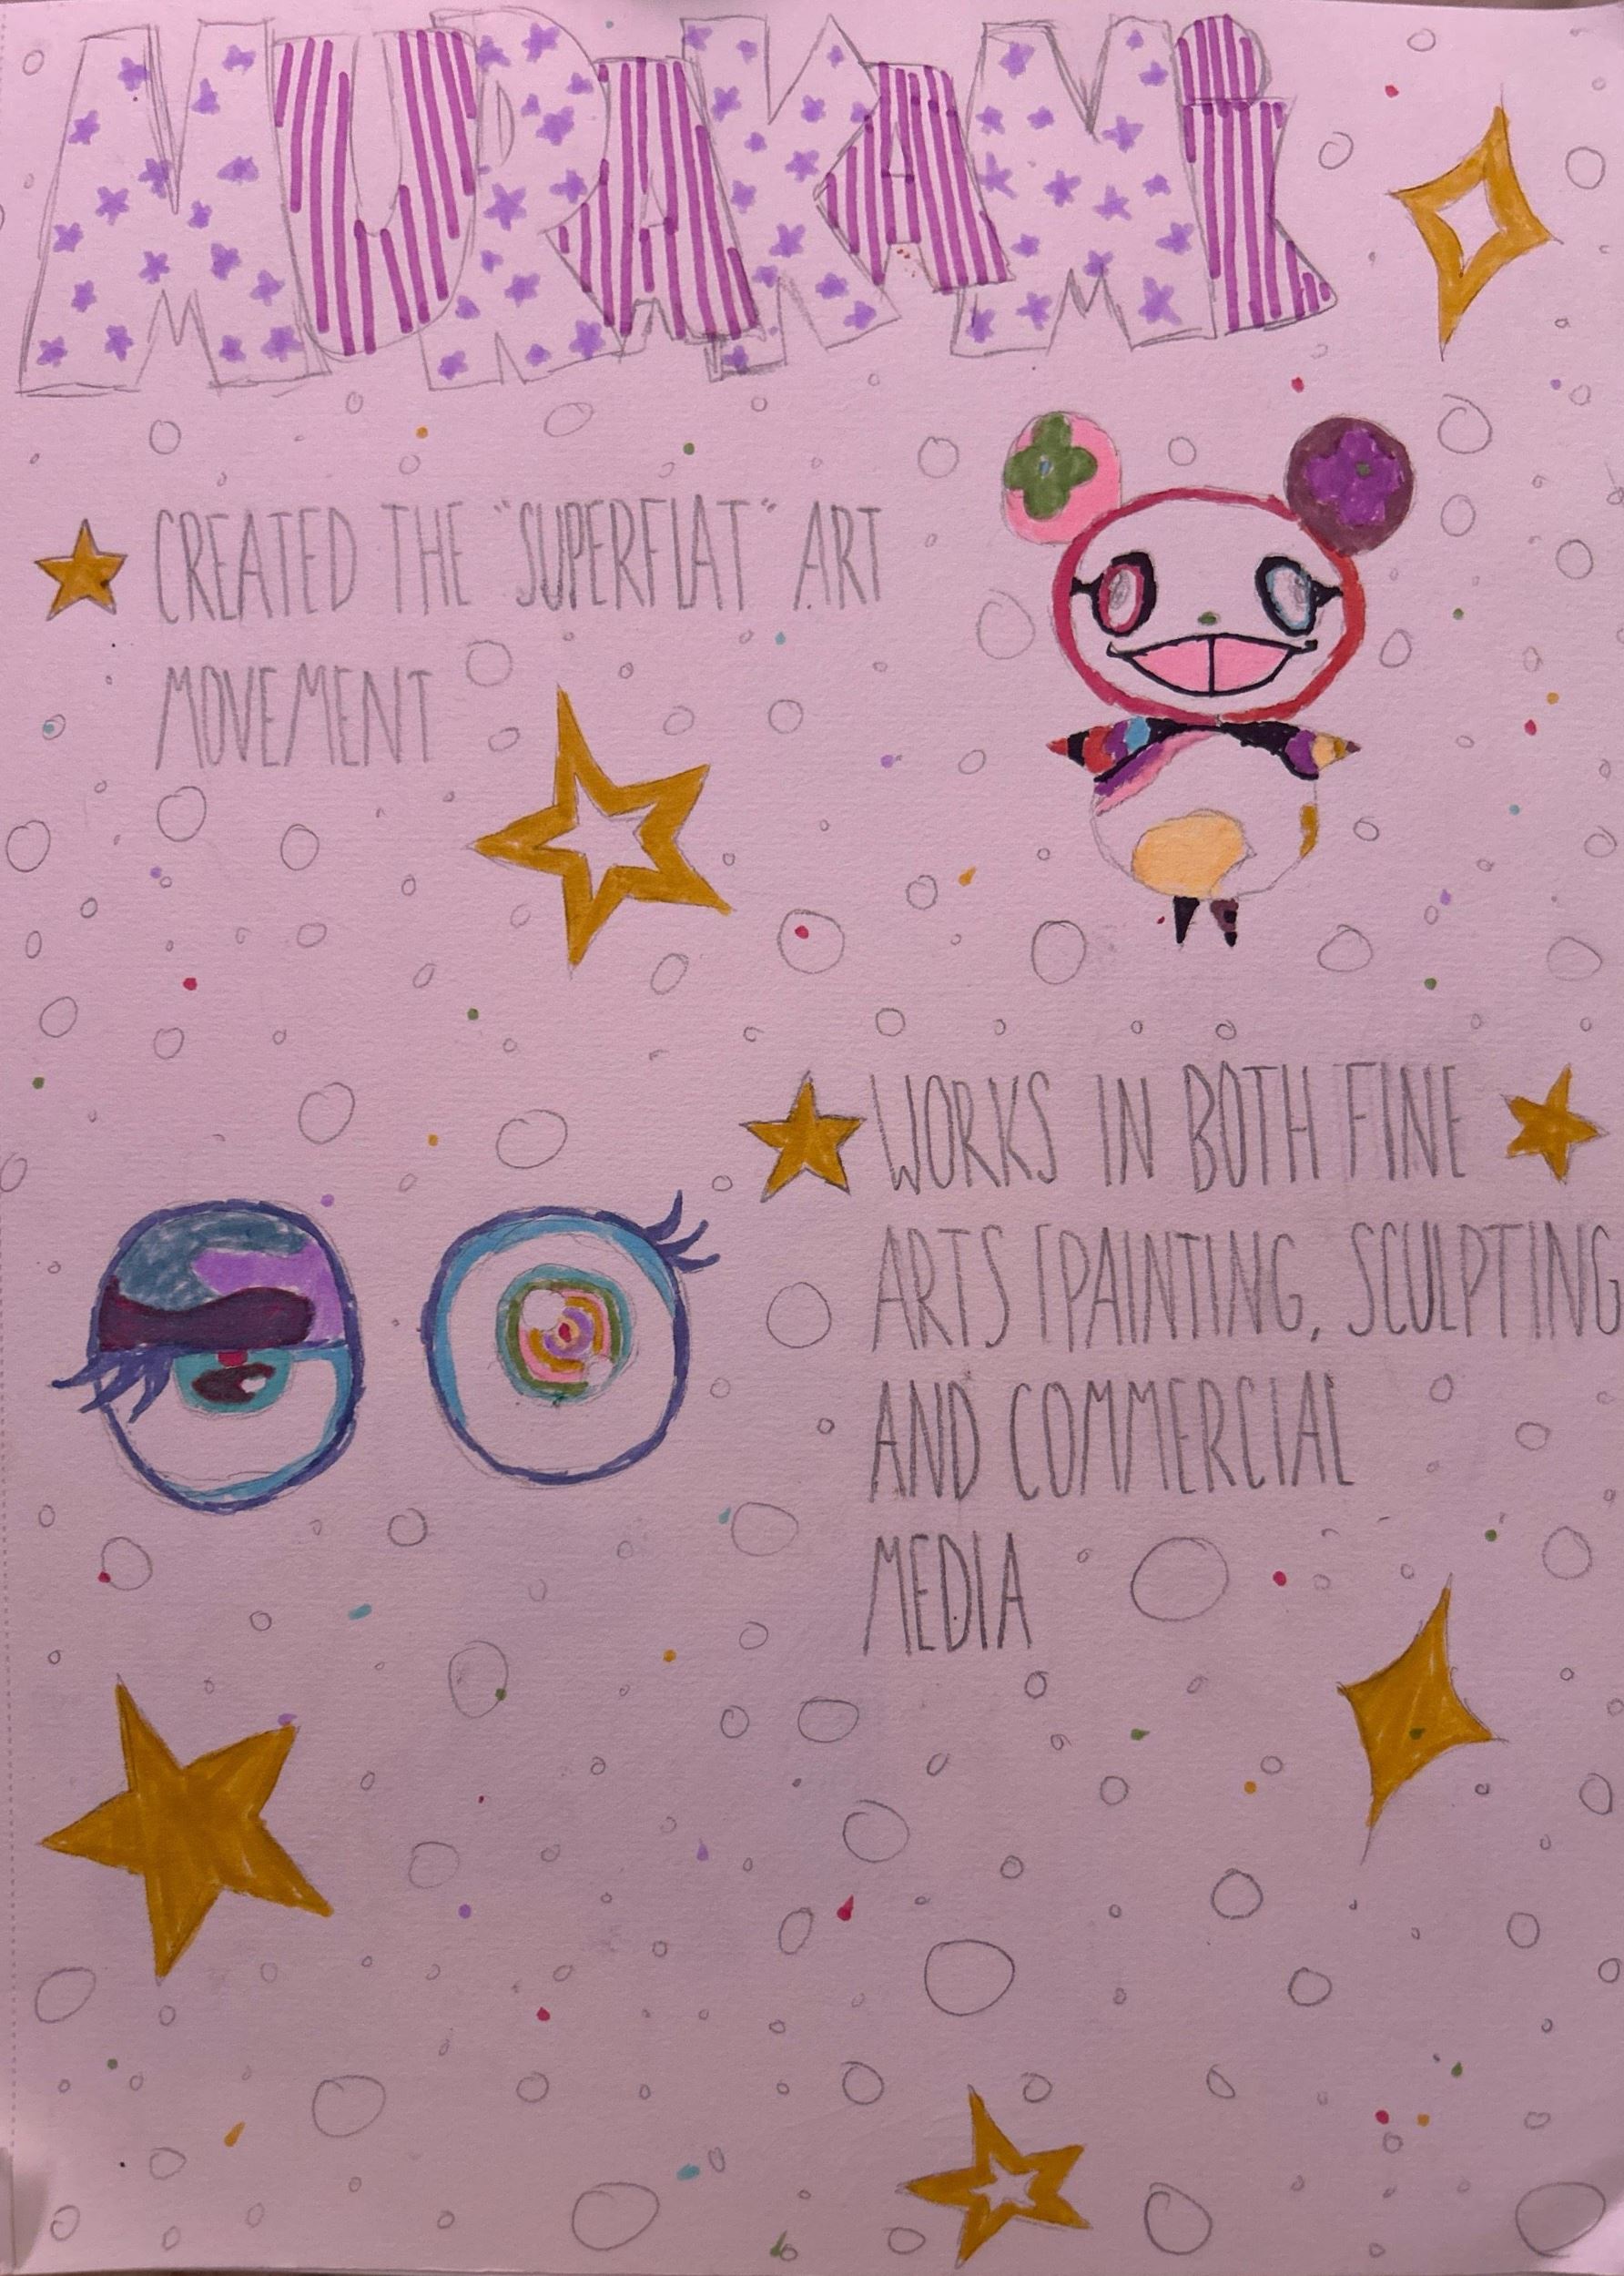 MURAKAMI
CREATED THE "SUPERFLAT" ART
MOVEMENT
WORKS IN BOTH FINE
ARTS [PAINTING, SCULPTING
AND COMMERCIAL
MEDIA